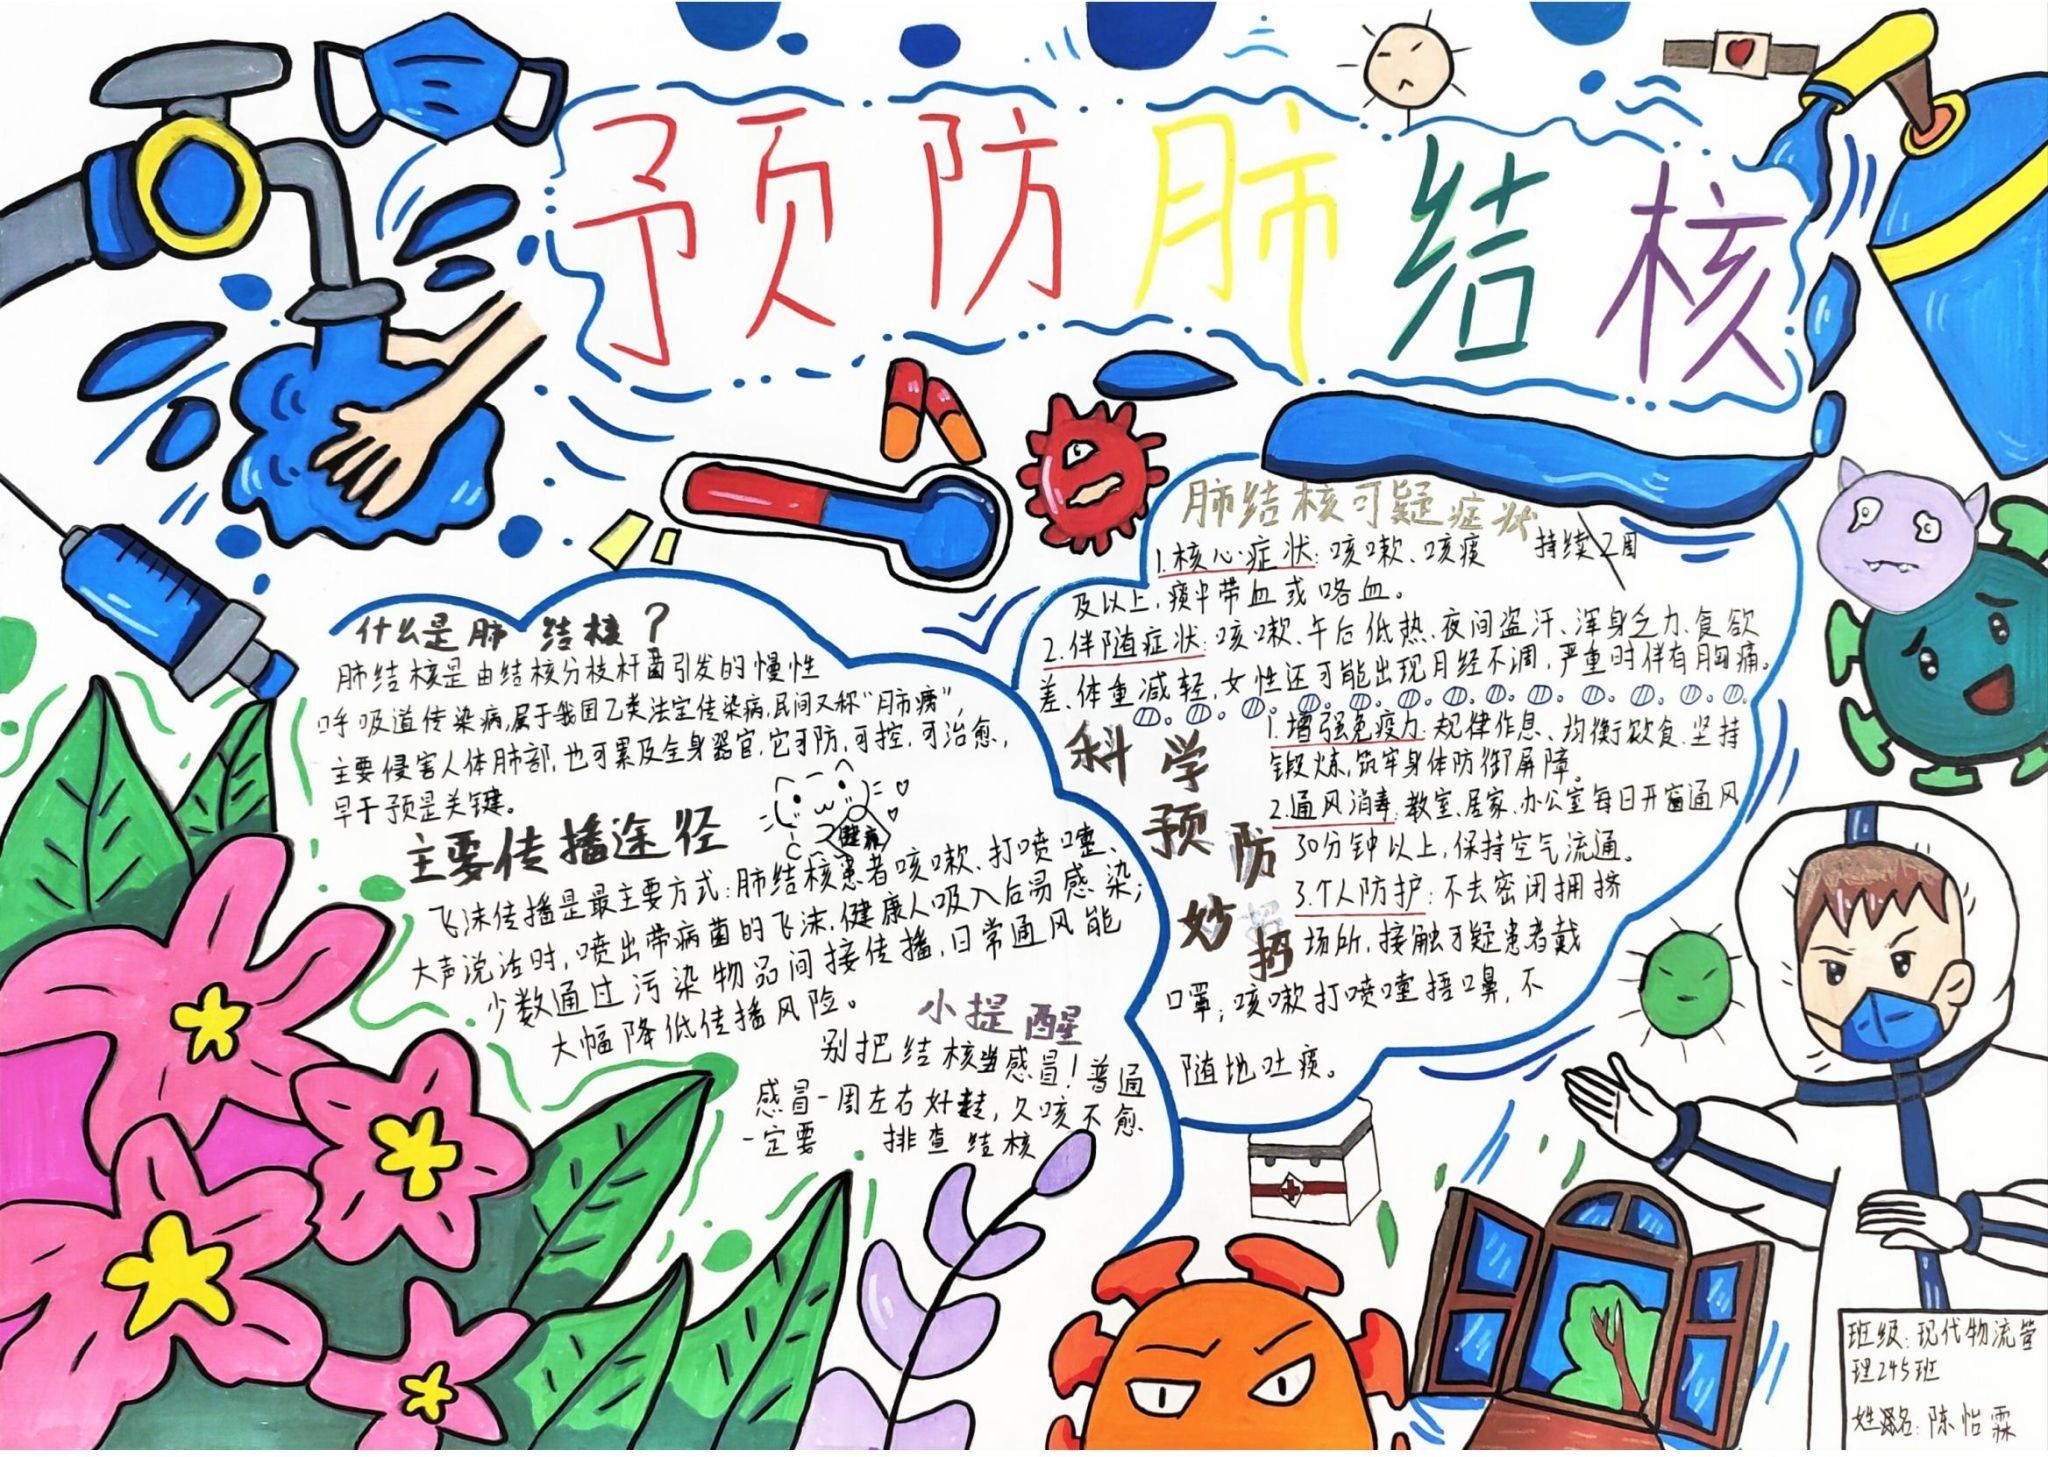 预防肺结核
什么是肺结核？
肺结核是由结核分枝杆菌引发的慢性
呼吸道传染病,属于我国乙类法定传染病,民间又称“肺痨”,
主要侵害人体肺部,也可累及全身器官,它可防,可控,可治愈,
早干预是关键。
健康
主要传播途径
飞沫传播是最主要方式:肺结核患者咳嗽、打喷嚏、
大声说话时,喷出带病菌的飞沫,健康人吸入后易感染;
少数通过污染物品间接传播,日常通风能
大幅降低传播风险。
小提醒
别把结核当感冒!普通
感冒一周左右好转,久咳不愈
一定要 排查结核
肺结核可疑症状
1.核心症状:咳嗽、咳痰 持续2周
及以上,痰中带血或咯血。
2.伴随症状:咳嗽、午后低热、夜间盗汗、浑身乏力、食欲
差、体重减轻,女性还可能出现月经不调,严重时伴有胸痛。
科学
预防
妙招
1.增强免疫力:规律作息、均衡饮食、坚持
锻炼,筑牢身体防御屏障。
2.通风消毒:教室、居家、办公室每日开窗通风
30分钟以上,保持空气流通。
3.个人防护:不去密闭拥挤
场所,接触可疑患者戴
口罩;咳嗽打喷嚏捂口鼻,不
随地吐痰。
班级:现代物流管
理245班
姓名:陈怡霖